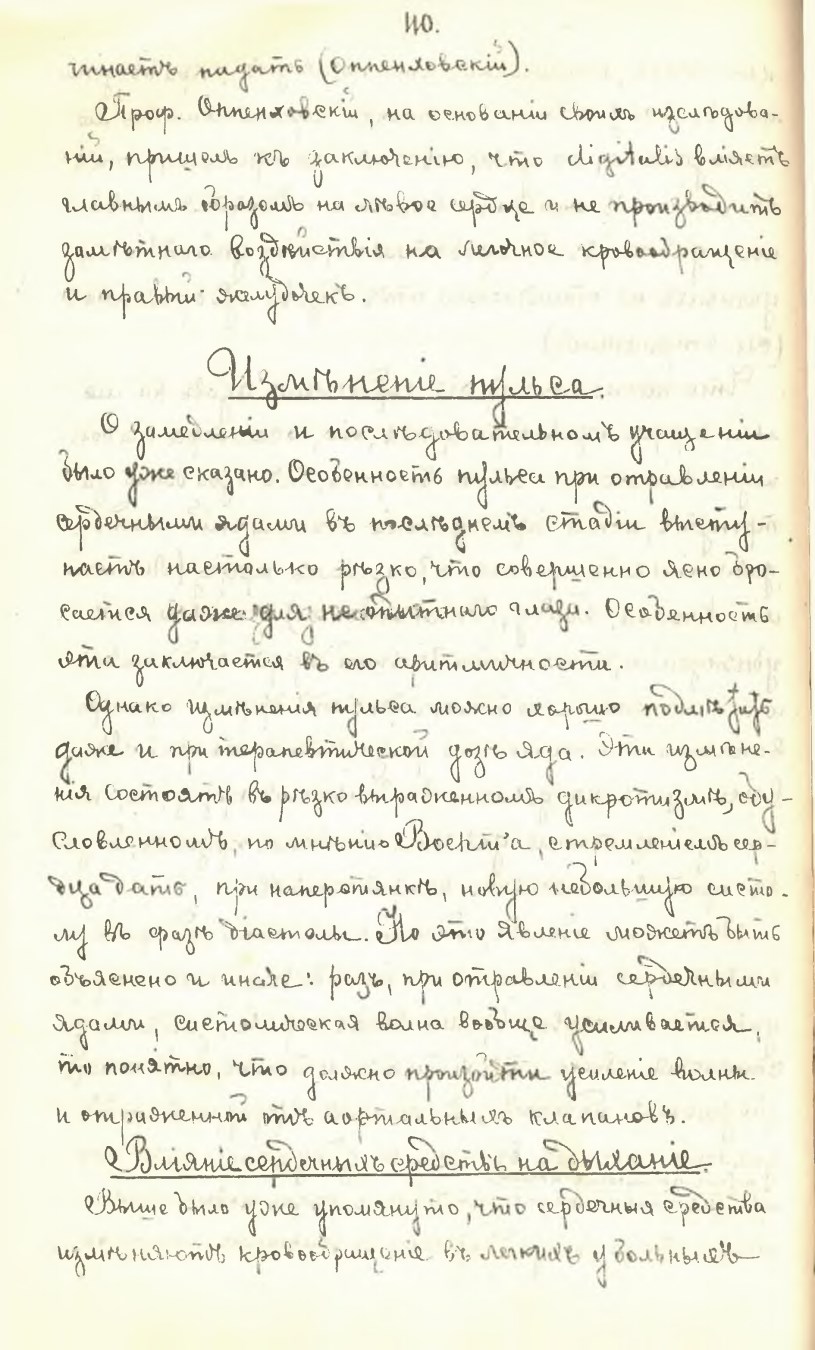 110.
чинаетъ падать (Оппенховскій).
Проф. Оппенховскій, на основаніи своихъ изслѣдова-
ній, пришелъ къ заключенію, что digitalis вліяетъ
главнымъ образомъ на лѣвое сердце и не производитъ
замѣтнаго воздѣйствія на легочное кровообращеніе
и правый желудочекъ.
Измѣненіе пульса.
О замедленіи и послѣдовательномъ учащеніи
было уже сказано. Особенность пульса при отравленіи
сердечными ядами въ послѣднемъ стадіи высту-
паетъ настолько рѣзко, что совершенно ясно бро-
сается даже для неопытнаго глаза. Особенность
эта заключается въ его аритмичности.
Однако измѣненія пульса можно хорошо подмѣтить
даже и при терапевтической дозѣ яда. Эти измѣне-
нія состоятъ въ рѣзко выраженномъ дикротизмѣ, обу-
словленномъ, по мнѣнію Boehm'а, стремленіемъ сер-
дца дать, при наперстянкѣ, новую небольшую систо-
лу въ фазѣ діастолы. Но это явленіе можетъ быть
объяснено и иначе: разъ, при отравленіи сердечными
ядами, систолическая волна вообще усиливается,
то понятно, что должно произойти усиленіе волны
и отраженной отъ аортальныхъ клапановъ.
Вліяніе сердечныхъ средствъ на дыханіе.
Выше было уже упомянуто, что сердечныя средства
измѣняютъ кровообращеніе въ легкихъ у больныхъ